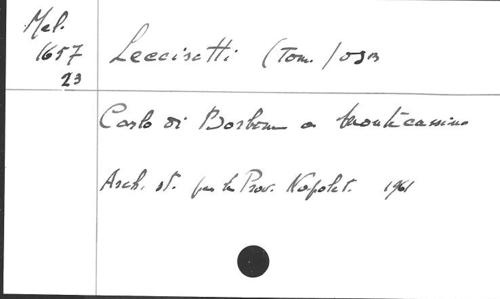 Mel.
1657
23
Leccisotti (Tom.) OSB
Carlo di Borbone a Montecassino
Arch. st. per le Prov. Napolet. 1961